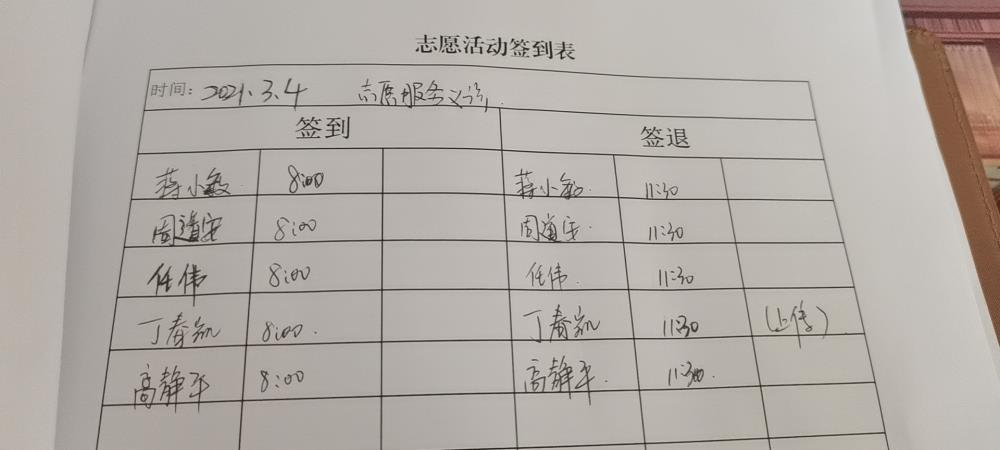 志愿活动签到表
时间: 2021.3.4 志愿服务义诊.
签到 签退
蒋小敏 8:00 蒋小敏. 11:30
周道安 8:00 周道安. 11:30
任伟 8:00 任伟. 11:30
丁春凯 8:00. 丁春凯 11:30 (上传)
高静平 8:00 高静平. 11:30.